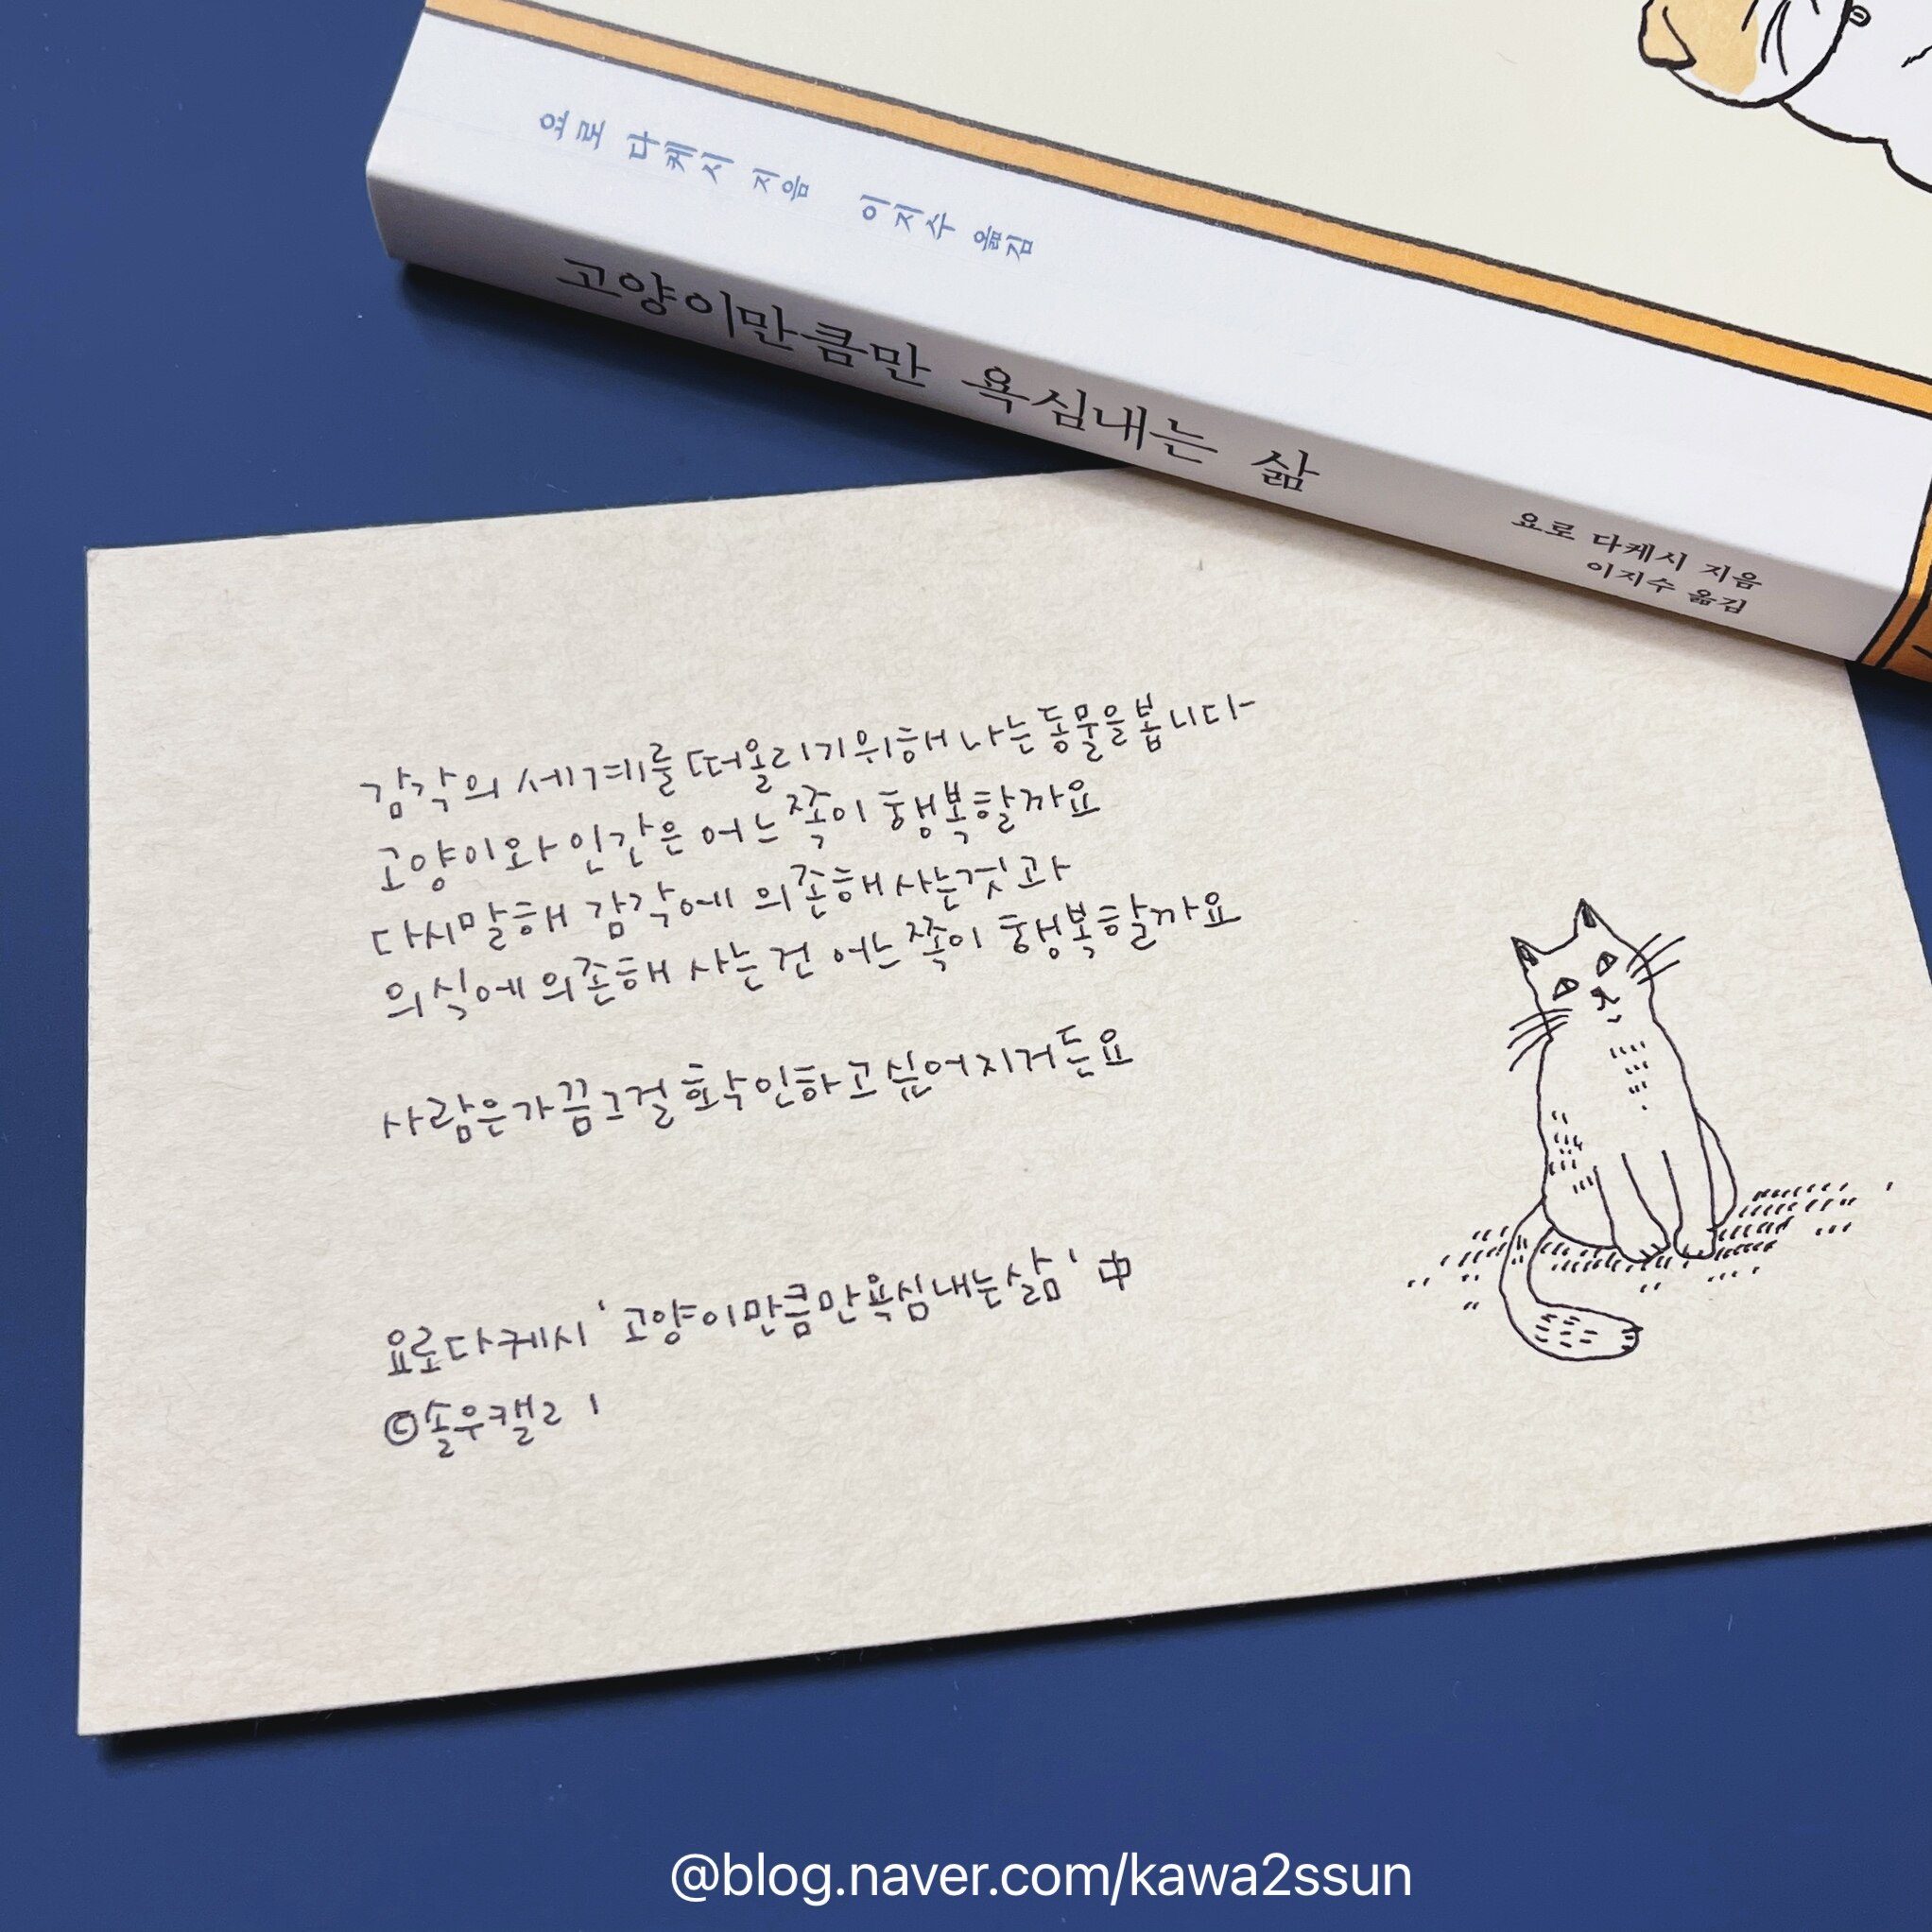 요로 다케시 지음 이지수 옮김
고양이만큼만 욕심내는 삶
요로 다케시 지음
이지수 옮김
감각의 세계를 떠올리기 위해 나는 동물을 봅니다
고양이와 인간은 어느 쪽이 행복할까요
다시말해 감각에 의존해 사는것과
의식에 의존해 사는 건 어느 쪽이 행복할까요
사람은 가끔 그걸 확인하고 싶어지거든요
요로다케시 '고양이만큼만 욕심내는 삶' 中
©솔우캘리
@blog.naver.com/kawa2ssun